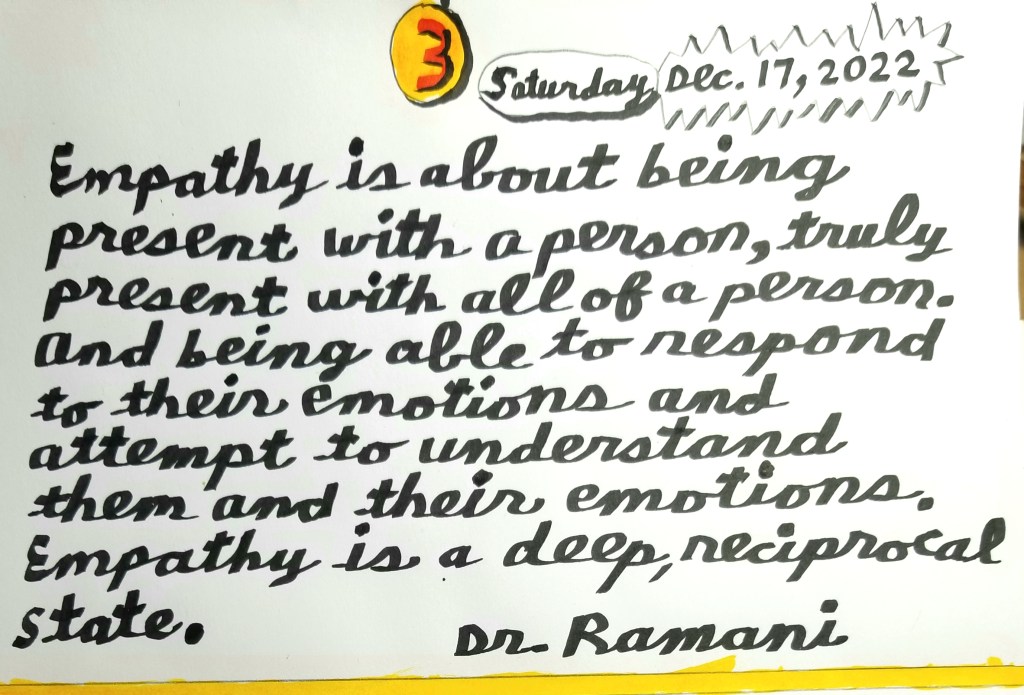 3
Saturday Dec. 17, 2022
Empathy is about being
present with a person, truly
present with all of a person.
And being able to respond
to their emotions and
attempt to understand
them and their emotions.
Empathy is a deep, reciprocal
state.
Dr. Ramani